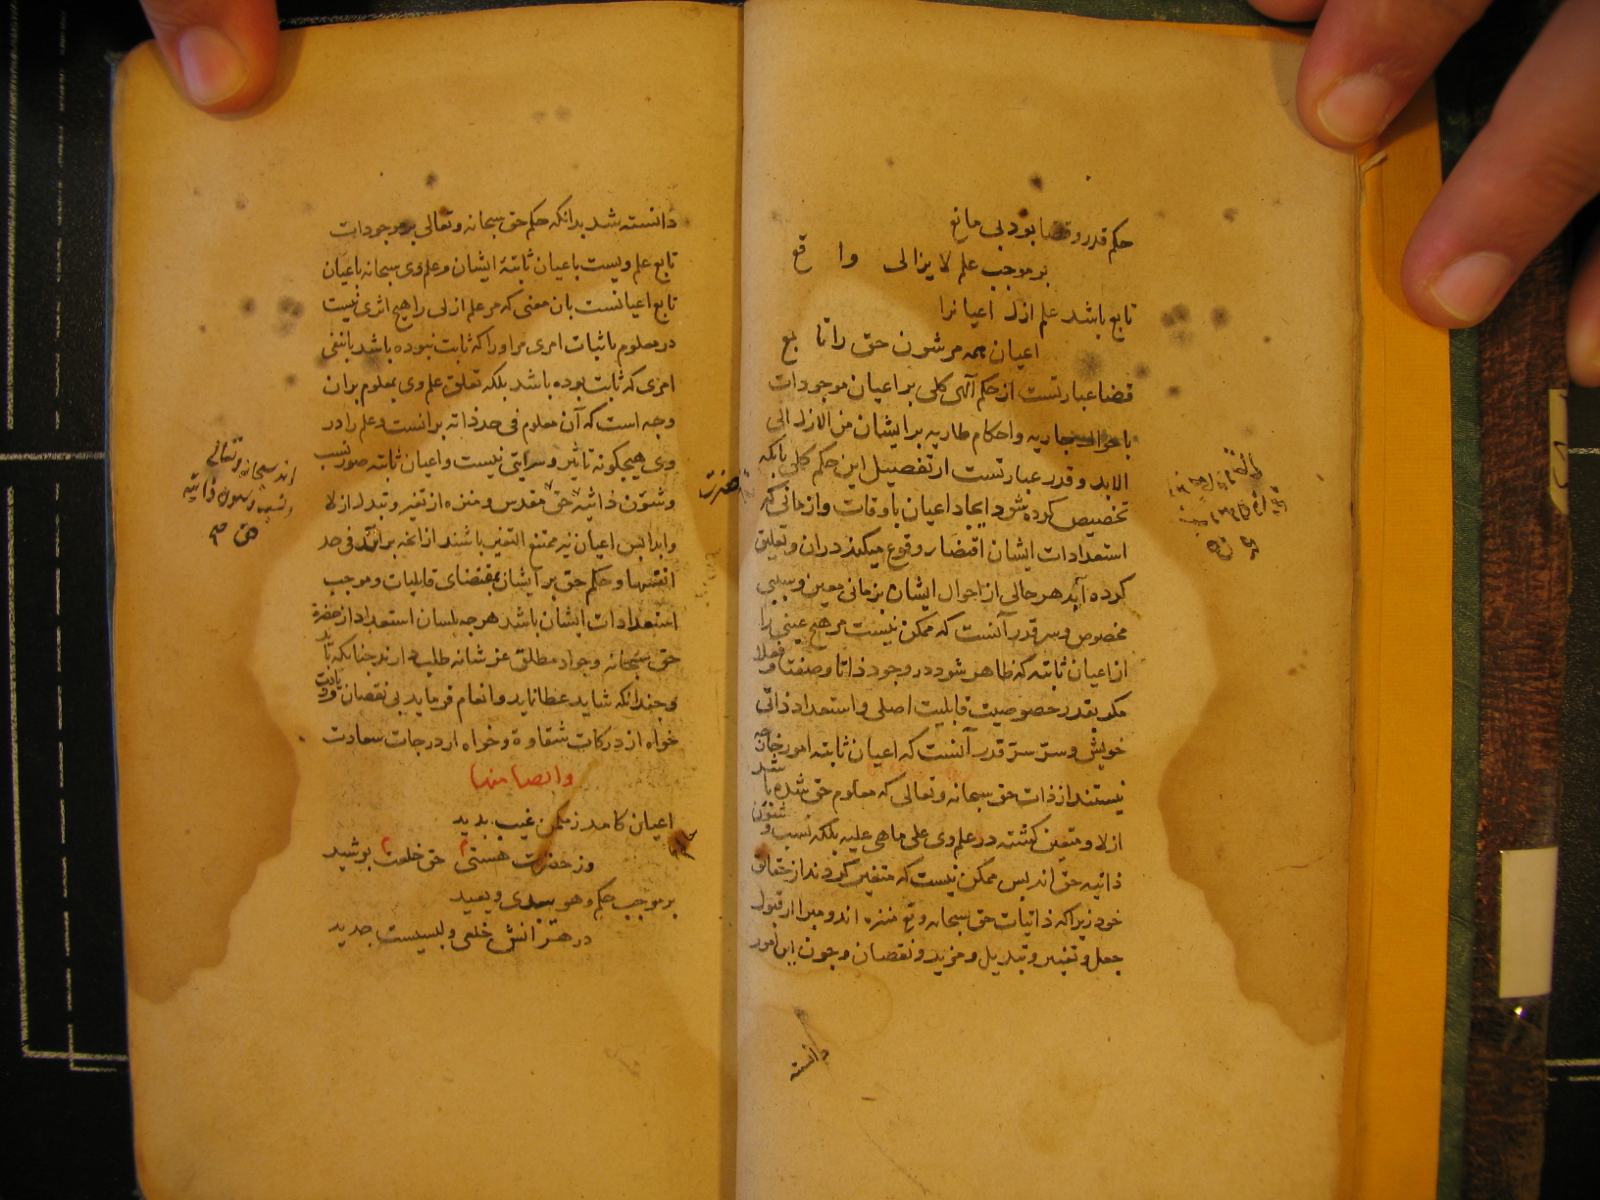 حکم قدر و قضا بود بی مانع
بر موجب علم لا یزالی واقع
تابع باشد علم ازل اعیانرا
اعیان همه مر شون حق را تابع
قضا عبارتست از حکم آلهی کلی بر اعیان موجودات
باحوال جاریه و احکام طاریه بر ایشان من الازل الی
الابد و قدر عبارتست از تفصیل این حکم کلی بانکه
تخصیص کرده شود ایجاد اعیان باوقات و ازمانی که
استعدادات ایشان اقتضاء وقوع میکند در ان و تعلیق
کرده آید هر حالی از احوال ایشان بزمانی معین و سببی
مخصوص و سر قدر آنست که ممکن نیست مر هیچ عینی را
از اعیان ثابته که ظاهر شود در وجود ذاتا و صفتا و فعلا
مکر بقدر خصوصیت قابلیت اصلی و استعداد ذاتی
خویش و سرّ سرّ قدر آنست که اعیان ثابته امور خارجه
نیستند از ذات حق سبحانه و تعالی که معلوم حق شده باشند
ازلا و متعین کشته در علم وی علی ماهی علیه بلکه نسب و شئون
ذاتیه حق اند پس ممکن نیست که متغیر کردند از حقایق
خود زیرا که ذاتیات حق سبحانه و تع منزه اند و مبرا از قبول
جعل و تغییر و تبدیل و مزید و نقصان و چون این امور
دانسته
دانسته شد بدانکه حکم حق سبحانه و تعالی بر موجودات
تابع علم ویست باعیان ثابتهٔ ایشان و علم وی سبحانه باعیان
تابع اعیانست بان معنی که مر علم ازلی را هیچ اثری نیست
در معلوم باثبات امری مر او را که ثابت نبوده باشد یا نفی
امری که ثابت بوده باشد بلکه تعلق علم وی بمعلوم بران
وجه است که آن معلوم فی حد ذاته برانست و علم را در
وی هیچکونه تاثیر و سرایتی نیست و اعیان ثابته صور نسب
و شئون ذاتیهٔ حق مقدس و منزه از تغیر و تبدل ازلا
و ابدا پس اعیان نیز ممتنع التغیر باشند از انچه بر آنند فی حد
انفسها و حکم حق بر ایشان بمقتضای قابلیات و موجب
استعدادات ایشان باشد هر چه بلسان استعداد از حضرة
حق سبحانه و جواد مطلق عز شانه طلب دارند چنانکه باید
و چندانکه شاید عطا نماید و انعام فرماید بی نقصان و زیادت
خواه از درکات شقاوة و خواه از درجات سعادت
و ایضا منها
اعیان کامد ز مکمن غیب بدید
وز حضرت هستی حق خلعت پوشید
بر موجب حکم و هو یبدی و یعید
در هر آنش خلعی و لبسیست جدید
اند سبحانه و تعالی
حضرت